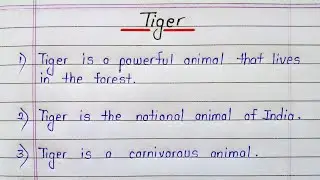 Tiger
1) Tiger is a powerful animal that lives
in the forest.
2) Tiger is the national animal of India.
3) Tiger is a carnivorous animal.